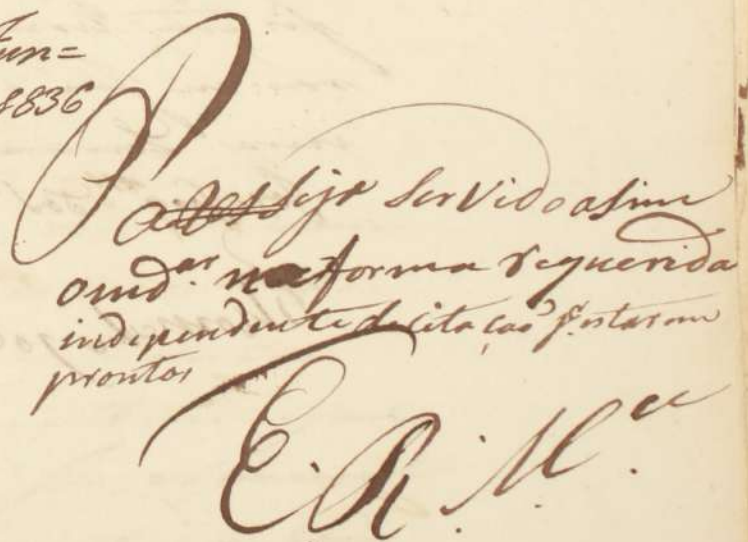 Jun=
1836
P a VS Seja Servido asim
omd.ar na forma requerida
independente de citação p.r estarem
promtos
E. R. M.ce